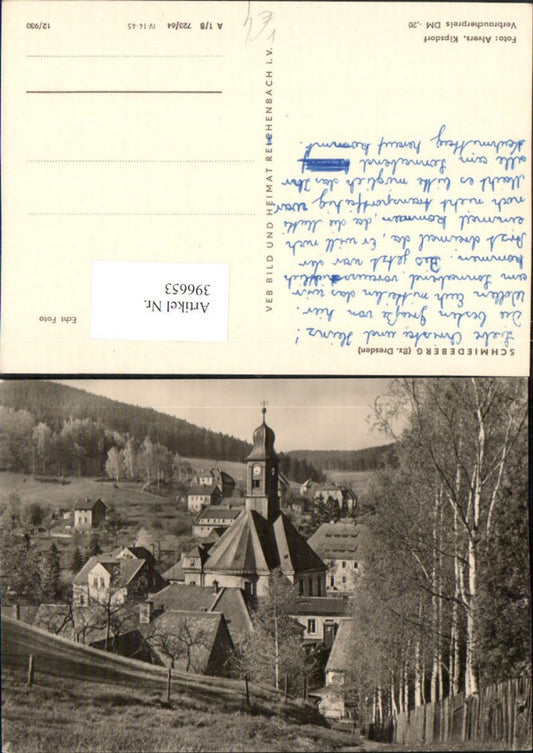 SCHMIEDEBERG (Bz. Dresden)
Liebe Christa und Heinz!
Die besten Grüße von hier.
Wollen Euch mitteilen das wir
am Sonnabend voraussichtlich
kommen. Bis jetzt war der
Arzt dreimal da, Er will noch
einmal kommen, da die Mutti
noch nicht transportfähig war.
Macht es bitte möglich das Ihr
alle am Sonnabend
Nachmittag herauf kommt.
Foto: Alvers, Kipsdorf
Verbraucherpreis DM -,20
VEB BILD UND HEIMAT REICHENBACH I. V.
Echt Foto
Artikel Nr.
396653
A 1/B 723/64 IV-14-45 12/930